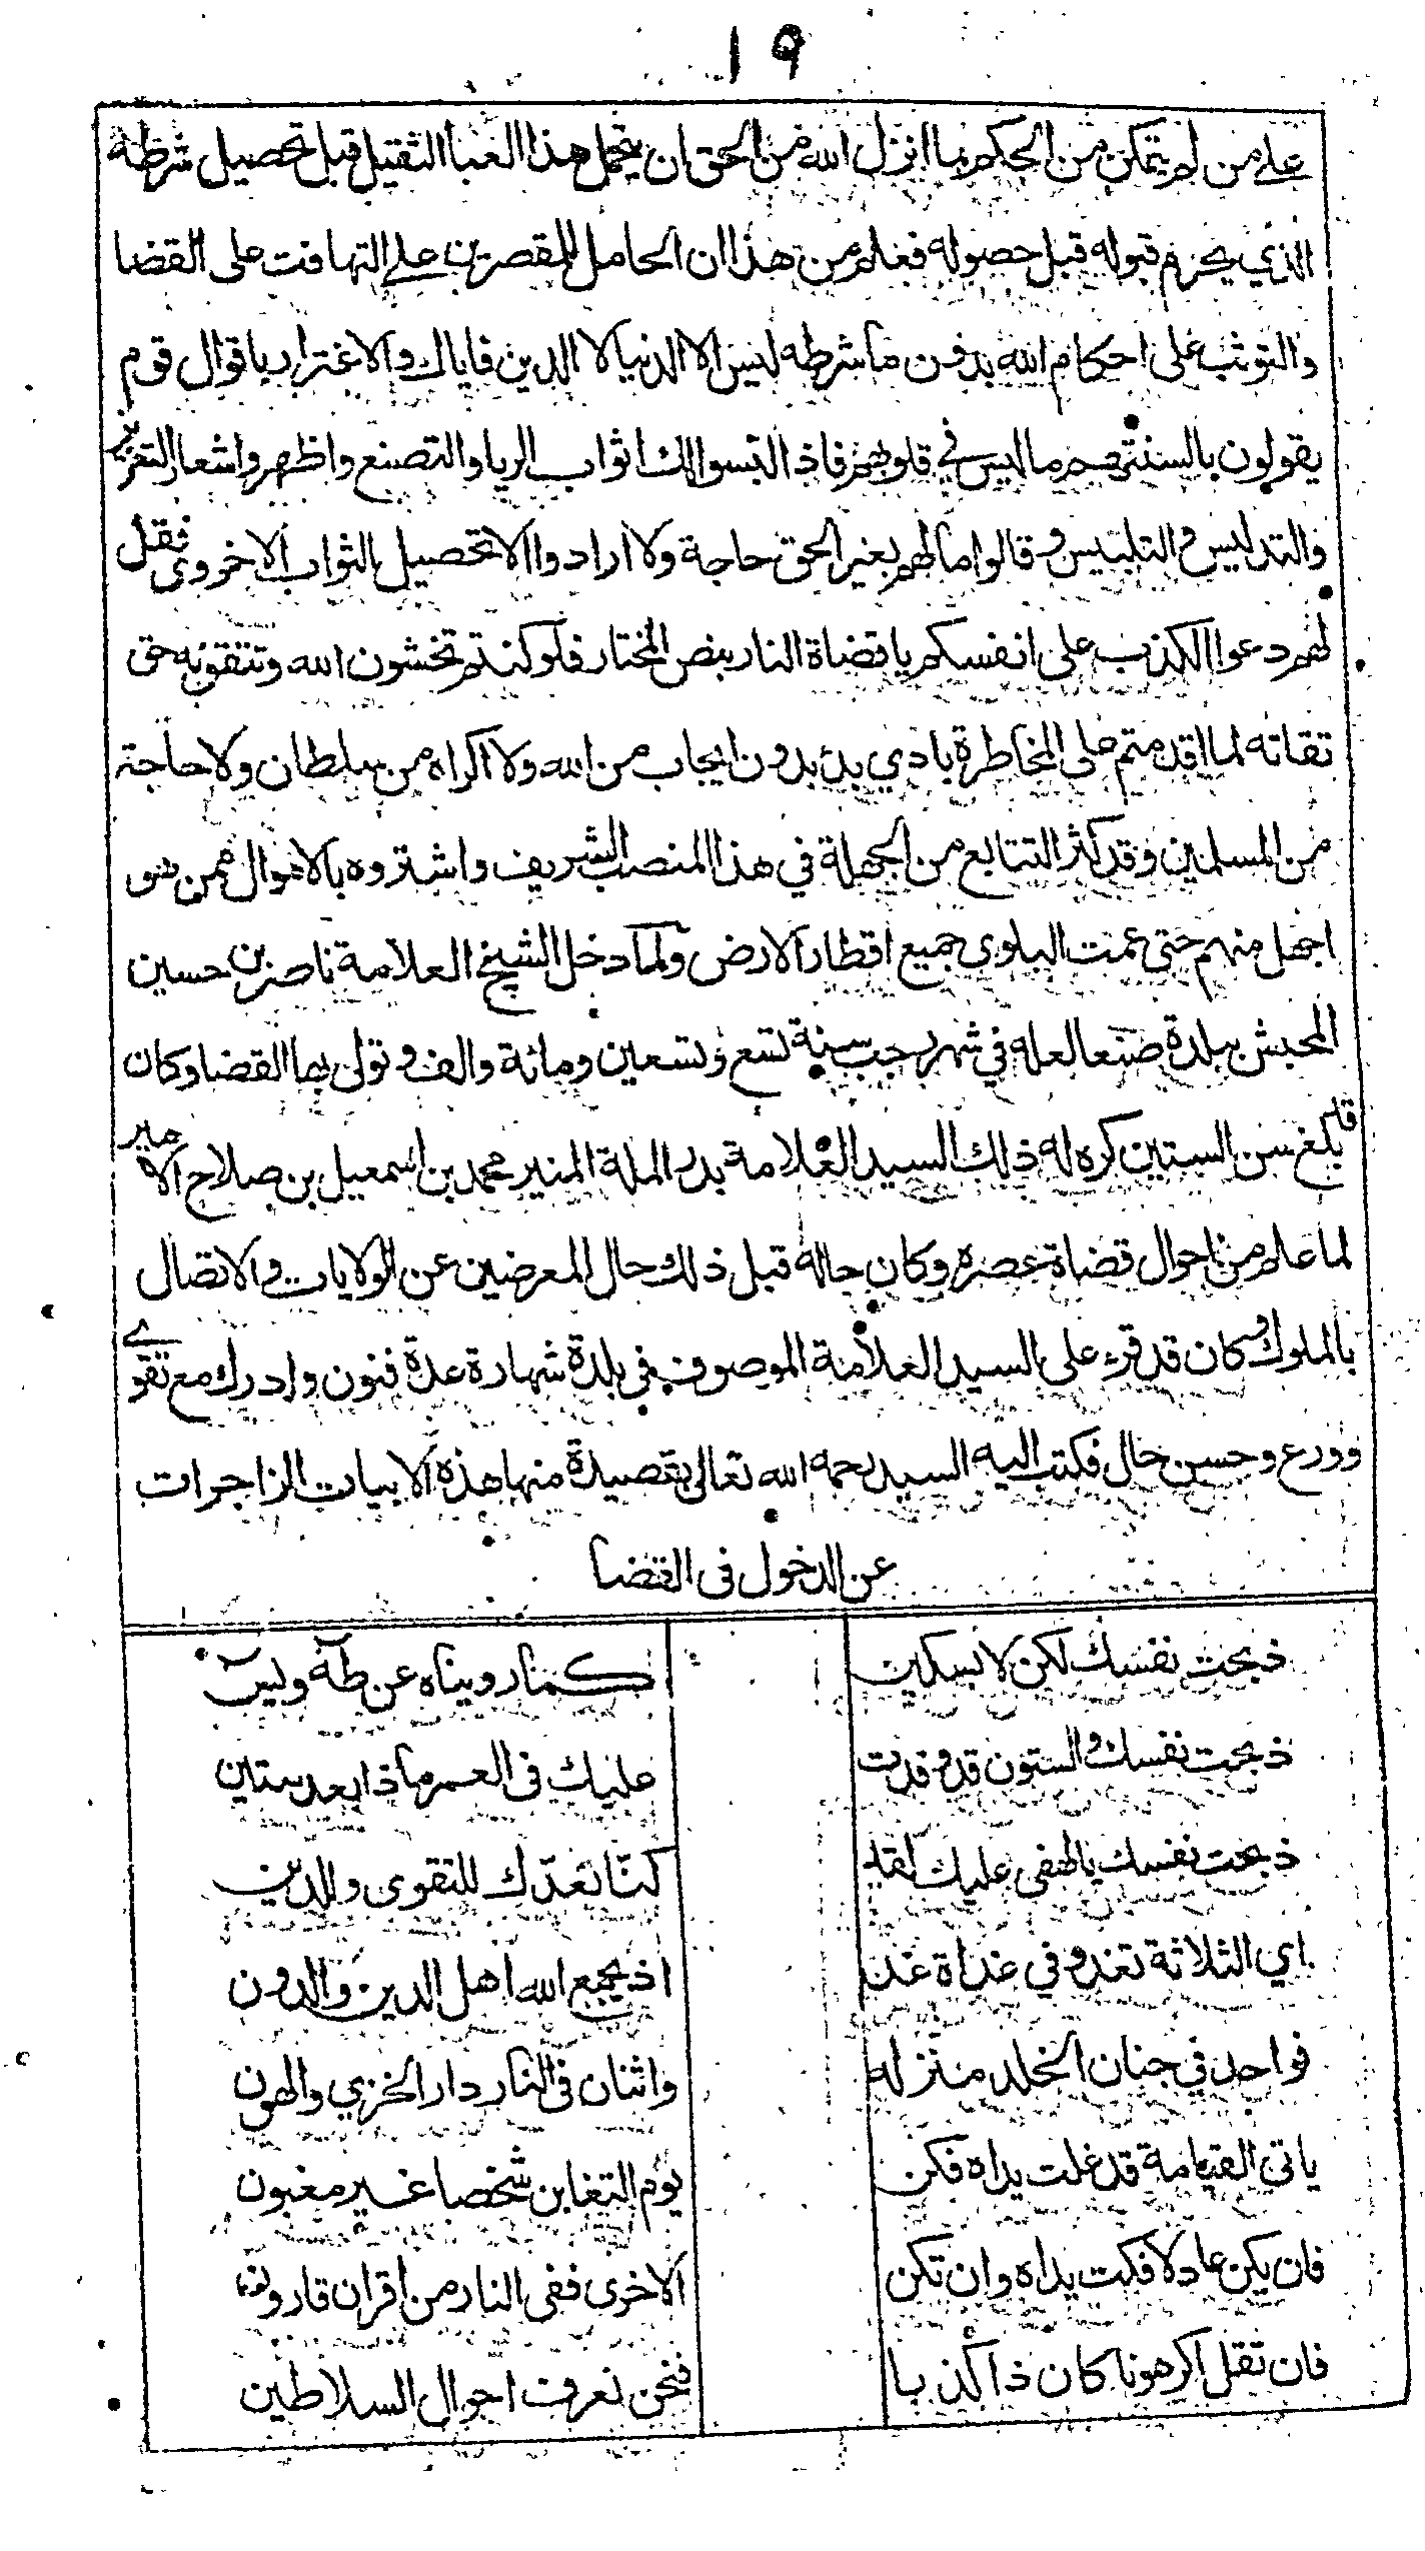 ١٩
على من لم يتمكن من الحكم بما انزل الله من الحق ان يتحمل هذا العبأ الثقيل قبل تحصيل شرطه
الذي يحرم قبوله قبل حصوله فعلم من هذا ان الحامل للمقصرين على التهافت على القضا
والتوثب على احكام الله بدون ما شرطه ليس الا الدنيا لا الدين فاياك والاغترار باقوال قوم
يقولون بالسنتهم ما ليس في قلوبهم فاذا لبسوا لك اثواب الريا والتصنع واظهروا شعار التغرير
والتدليس والتلبيس وقالوا ما لهم بغير الحق حاجة ولا ارادوا الا تحصيل الثواب الاخروي فقل
لهم دعوا الكذب على انفسكم يا قضاة النار بنص المختار فلو كنتم تخشون الله وتتقونه حق
تقاته لما اقدمتم على المخاطرة بادي بدء بدون ايجاب من الله ولا اكراه من سلطان ولا حاجة
من المسلمين وقد كثر التتابع من الجهلة في هذا المنصب الشريف واشتروه بالاموال ممن هو
اجهل منهم حتى عمت البلوى جميع اقطار الارض ولما دخل الشيخ العلامة ناصر بن حسين
المحبش ببلدة صنعا لعله في شهر رجب سنة تسع وتسعين ومائة والف وتولى بها القضا وكان
قد بلغ سن الستين كره له ذلك السيد العلامة بدر الملة المنير محمد بن اسمعيل بن صلاح الامير
لما علم من احوال قضاة عصره وكان حاله قبل ذلك حال المعرضين عن الولايات والاتصال
بالملوك وكان قد قرء على السيد العلامة الموصوف في بلدة شهارة عدة فنون وادرك مع تقوى
وورع وحسن حال فكتب اليه السيد رحمه الله تعالى بقصيدة منها هذه الابيات الزاجرات
عن الدخول فى القضا
ذبحت نفسك لكن لا بسكين كما رويناه عن طه ويس
ذبحت نفسك والستون قد وفدت عليك فى العمر ماذا بعد ستين
ذبحت نفسك يا لهفى عليك لقد كنا نعدّك للتقوى وللدين
اي الثلاثة تغدو في غداة غد اذ يجمع الله اهل الدين والدون
فواحد في جنان الخلد منزله واثنان فى النار دار الخزي والهون
ياتي القيامة قد غلت يداه فكن يوم التغابن شخصا غير مغبون
فان يكن عادلا فكت يداه وان تكن الاخرى ففى النار من اقران قارون
فان تقل اكرهونا كان ذا كذبا فنحن نعرف احوال السلاطين